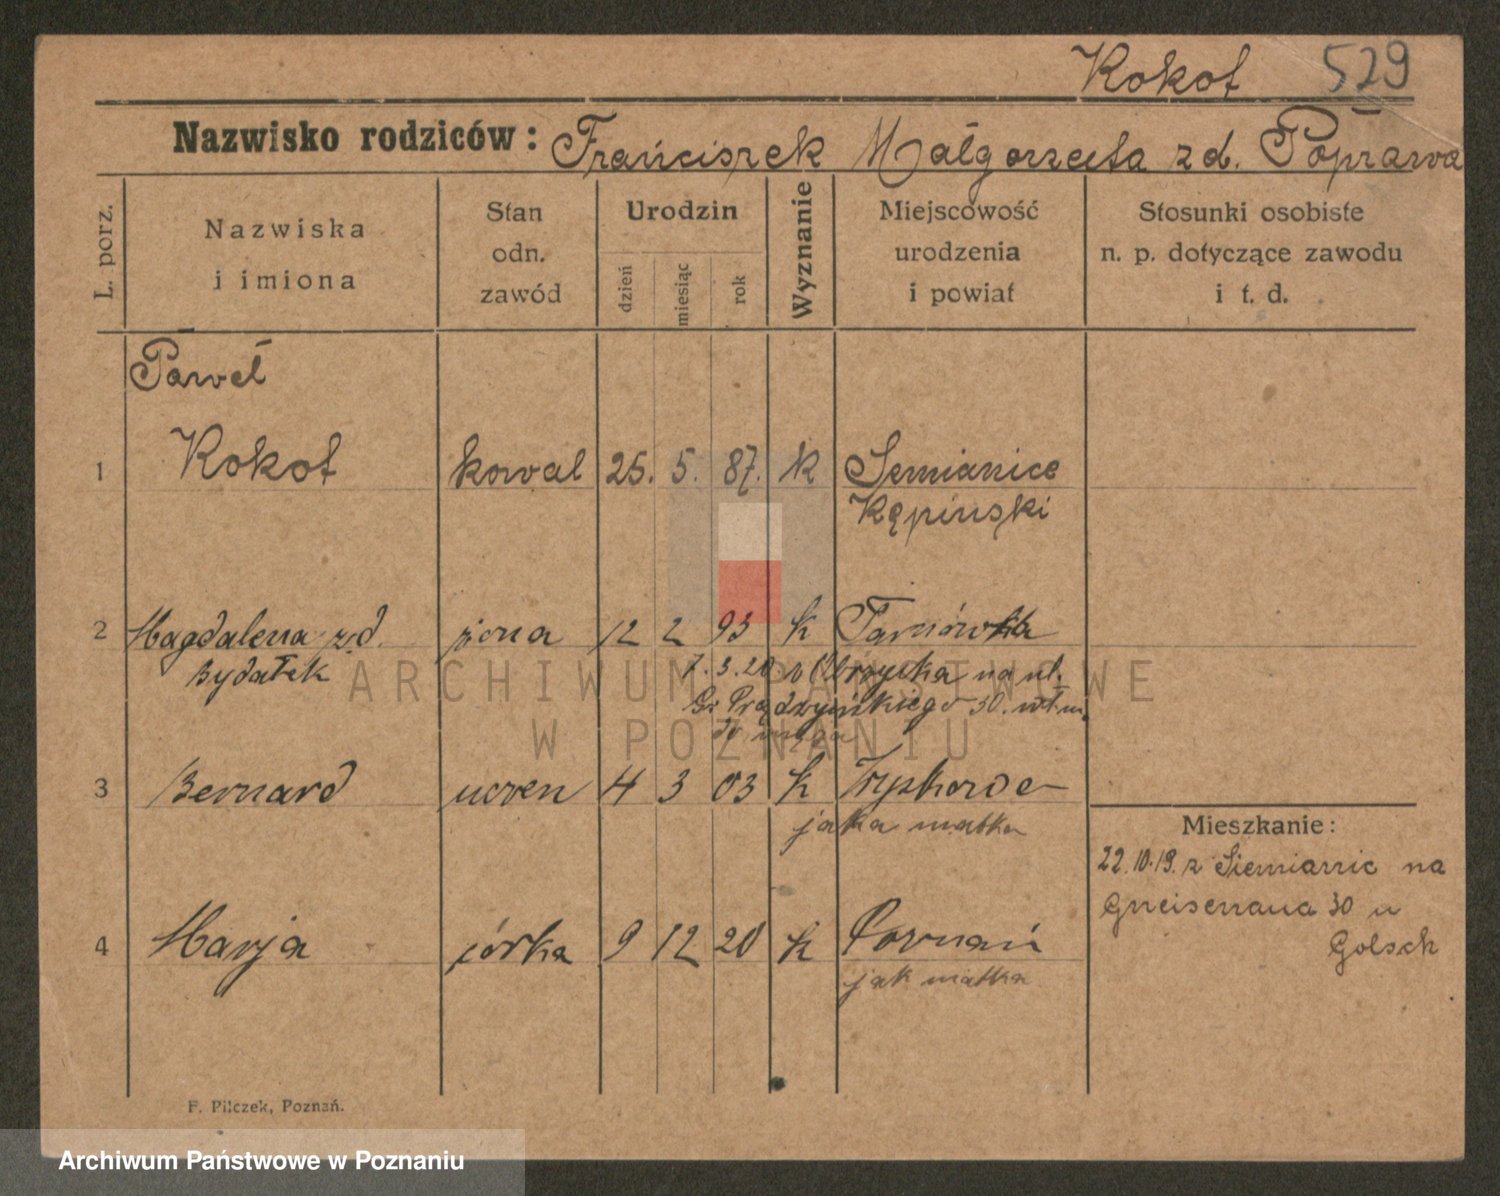 Kokot 529
Nazwisko rodziców: Frańciszek Małgorzata zd. Poprawa
L. porz.
Nazwiska
i imiona
Stan
odn.
zawód
Urodzin
dzień
miesiąc
rok
Wyznanie
Miejscowość
urodzenia
i powiat
Stosunki osobiste
n. p. dotyczące zawodu
i t. d.
Paweł
1 Kokot kowal 25. 5. 87. k Semianice
Kępinski
2 Magdalena z d. żona 12 2 93 k Tarnówka
Bydałek 7. 3. 20 na ul.
Gr. Prądzyńskiego 30.
do męża
3 Bernard uczen 4 3 03 k
jaka matka
Mieszkanie:
22.10.19. z Siemianic na
Gneisenaua 30 u
Golsch
4 Marja córka 9 12 20 k Poznań
jak matka
F. Pilczek, Poznań.
ARCHIWUM PAŃSTWOWE
W POZNANIU
Archiwum Państwowe w Poznaniu